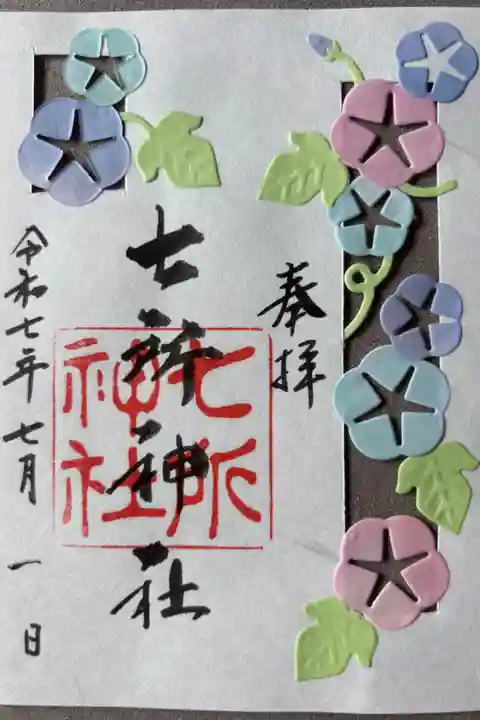 奉拝
七所神社
七所神社
令和七年七月一日